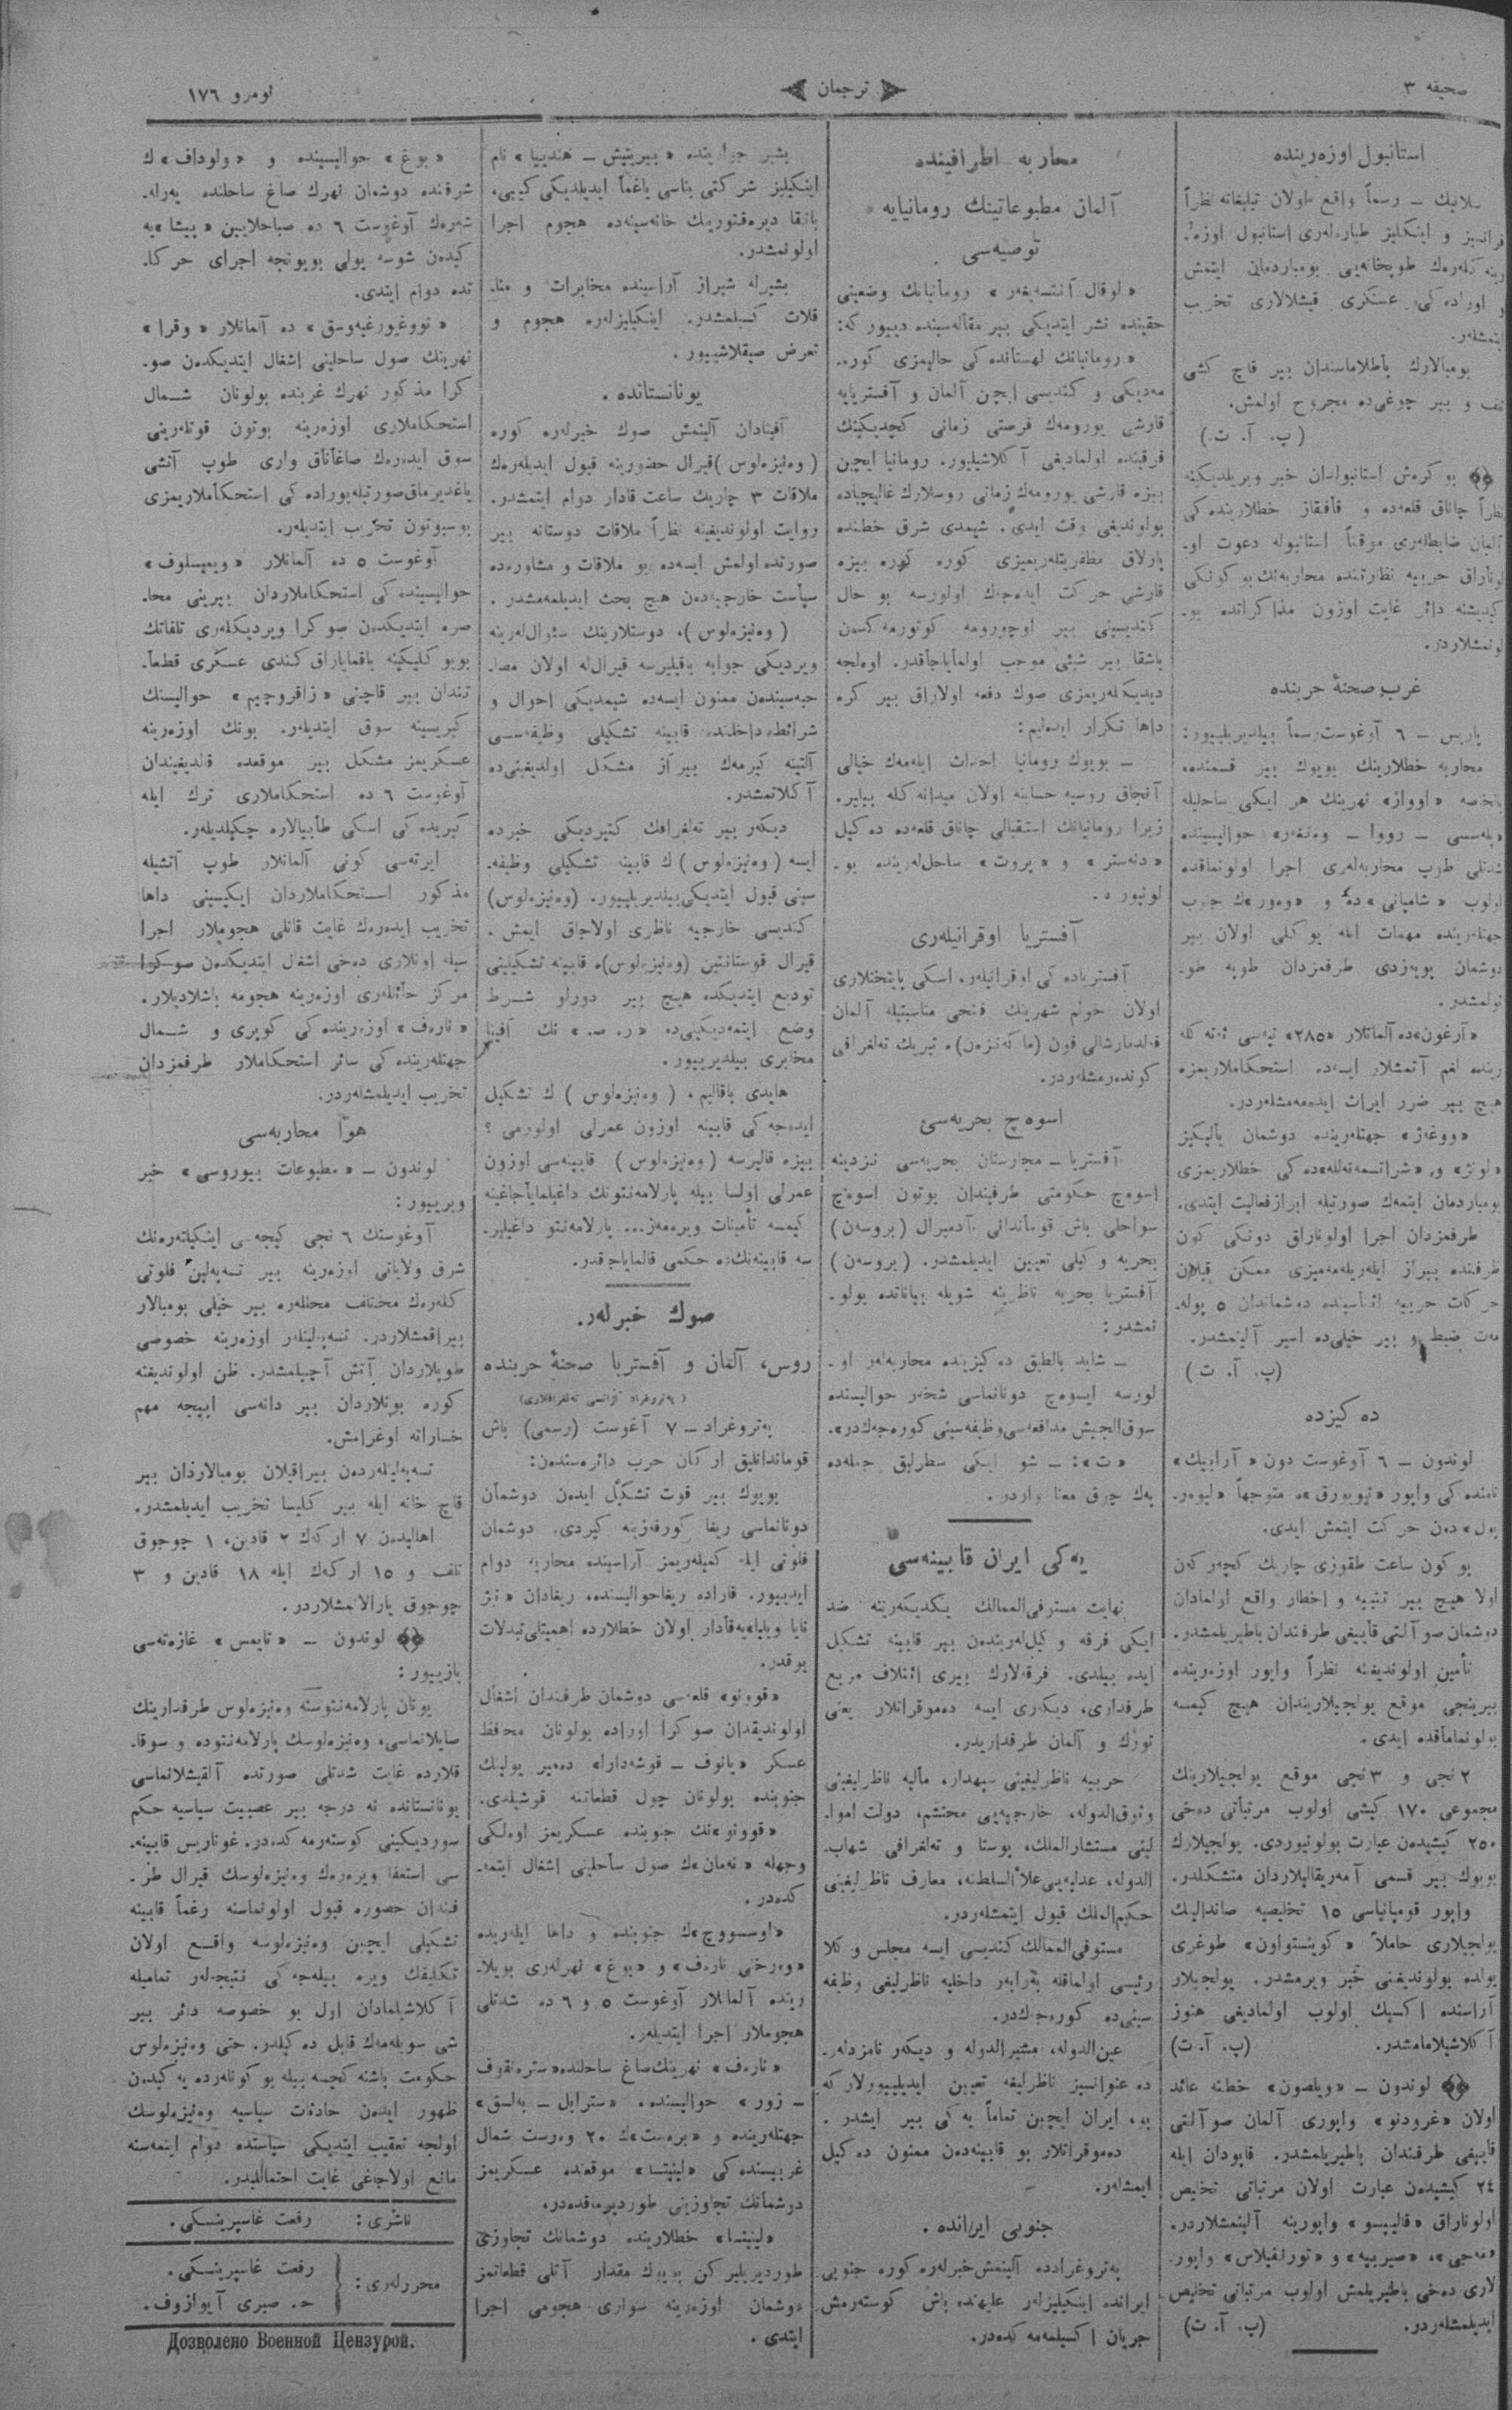 صحیفه ۳
ترجمان
نومرو ۱۷٦
استانبول اوزەرینده
سلانیك – رسماً واقع اولان تبلیغاته نظراً
فرانسز و اینکلیز طیارەلەری استانبول اوزە‌
رینه کلەرەك طوپخانەیی بومباردمان ایتمش
و اورادەکی عسکری قیشلالاری تخریب
ایتمشلەر.
بومبالارك پاطلاماسندان بیر قاچ کشی
تلف و بیر چوغی‌ده مجروح اولمش.
(پ. آ. ت.)
بو کرەش استانبولدان خبر ویریلدیکینه
نظراً چاناق قلعەده و قافقاز خطلارینده‌کی
آلمان ضابطلەری موقتاً استانبوله دعوت او‌
لوناراق حربیه نظارتنده محاربەنك بو کونکی
کیدیشنه دائر غایت اوزون مذاکراتده بو‌
لونمشلاردر.
غرب صحنهٔ حربنده
پاریس – ٦ آوغوست رسماً بیلدیریلییور:
محاربه خطلارینك بویوك بیر قسمنده،
بالخصه «اوواز» نهرینك هر ایکی ساحلیله
حوالیسینده
شدتلی طوپ محاربەلەری اجرا اولونماقده
اولوب «شامپانی»ده و
جهتلەرینده مهمات ایله یوکلی اولان بیر
دوشمان پویەزدی طرفمزدان طوپه طو‌
تولمشدر.
«آرغون»ده آلمانلار «۲۸۵» تپەسی
رینده لغم آتمشلار ایسەده استحکاملاریمزه
هیچ بیر ضرر ایراث ایدەمەمشلەردر.
«ووغەز» جهتلەرینده دوشمان یالیکیز
خطلاریمزی
بومباردمان ایتمەك صورتیله ابراز فعالیت ایتدی.
طرفمزدان اجرا اولوناراق دونکی کون
ظرفنده بیراز ایلەریلەمەمیزی ممکن قیلان
حرکات حربیه اثناسینده دوشماندان ۵ پوله‌
مەت ضبط و بیر خیلی‌ده اسیر آلینمشدر.
(پ. آ. ت)
دەکیزده
لوندون – ٦ آوغوست دون «آرابیك»
نامنده‌کی واپور «نیویورق»ه متوجهاً «لیوەر‌
پول»دەن حرکت ایتمش ایدی.
بو کون ساعت طقوزی چاریك کچەرکەن
اولا هیچ بیر تنبیه و اخطار واقع اولمادان
دوشمان صو آلتی قاییغی طرفندان باطیریلمشدر.
تأمین اولوندیغنه نظراً واپور اوزەرینده
بیرینجی موقع یولجیلاریندان هیچ کیمسه
بولونمامأقده ایدی.
۲ نجی و ۳ نجی موقع یولجیلارینك
مجموعی ۱۷۰ کیشی اولوب مرتباتی دەخی
۲۵۰ کیشیدەن عبارت بولونیوردی. یولجیلارك
بویوك بیر قسمی آمەریقالیلاردان متشکلدر.
واپور قومپانیاسی ۱۵ تخلیصیه صاندالینك
یولجیلاری حاملاً «کوینستواون» طوغری
یولده بولوندیغنی خبر ویرمشدر. یولجیلار
آراسنده اکسیك اولوب اولمادیغی هنوز
آکلاشیلامامشدر. (پ. آ. ت)
لوندون – «ویلصون» خطنه عائد
اولان «غرودنو» واپوری آلمان صو آلتی
قاییغی طرفندان باطیریلمشدر. قاپودان ایله
۲٤ کیشیدەن عبارت اولان مرتباتی تخلیص
اولوناراق «قالیپسو» واپورینه آلینمشلاردر.
«صیربیه» و «نورنفیلاس» واپور‌
لاری دەخی باطیریلمش اولوب مرتباتی تخلیص
ایدیلمشلەردر. (پ. آ. ت)
محاربه اطرافینده
آلمان مطبوعاتینك رومانیایه
توصیەسی
«لوقال آنتسەیغەر» رومانیانك وضعیتی
حقینده نشر ایتدیکی بیر مقالەسینده دییور که:
«رومانیانك لهستانده‌کی حالیمزی کورە‌
مەدیکی و کندیسی ایچون آلمان و آفستریایه
قارشی یورومەك فرصتی زمانی کچدیکینك
فرقینده اولمادیغی آکلاشیلیور. رومانیا ایچین
بیزه قارشی یورومەك زمانی روسلارك غالیچیاده
بولوندیغی وقت ایدی. شیمدی شرق خطنده
پارلاق مظفریتلەریمیزی کوره کوره بیزه
قارشی حرکت ایدەجەك اولورسه بو حال
کندیسینی بیر اوچورومه کوتورمەکسەن
باشقا بیر شیئی موجب اولمایاجأقدر. اوەلجه
دیدیکلەریمزی صوك دفعه اولاراق بیر کره
داها تکرار ایدەلیم:
– بویوك رومانیا احداث ایلەمەك خیالی
آنجاق روسیه حسابنه اولان میدانه کله بیلیر.
زیرا رومانیانك استقبالی چاناق قلعەده دەکیل
«دنەستر» و «پروت» ساحل‌لەرینده بو‌
لونیور.
آفستریا اوقراینلەری
آفستریاده‌کی اوقراینلەر، اسکی پایتختلاری
اولان خولم شهرینك فتحی مناسبتیله آلمان
فیلدمارشالی فون (ماکەنزەن)ه تبریك تەلغرافی
کوندەرمشلەردر.
اسوەچ بحریەسی
آفستریا – مجارستان بحریەسی نزدینه
اسوەچ حکومتی طرفیندان بوتون اسوەچ
سواحلی باش قوماندانی آدمیرال (بروسەن)
بحریه وکیلی تعیین ایدیلمشدر. (بروسەن)
آفستریا بحریه ناظرینه شویله بیاناتده بولو‌
نمشدر:
– شاید بالطیق دەکیزینده محاربەلەر او‌
لورسه ایسوەچ دونانماسی شخەر حوالیسنده
سوق‌الجیش مدافعەسی وظیفەسینی کورەجەکدر».
«ت»: – شو ایکی سطرلیق جملەده
پەك چوق معنا واردر.
یەکی ایران قابینەسی
نهایت مستوفی‌الممالك یکدیکەرینه ضد
ایکی فرقه وکیل‌لەریندەن بیر قابینه تشکیل
ایده بیلدی. فرقەلارك بیری ائتلاف مربع
طرفداری، دیکەری ایسه دەموقراتلار یعنی
تورك و آلمان طرفداریدر.
حربیه ناظرلیغینی سپهدار، مالیه ناظرلیغینی
وثوق‌الدوله، خارجیەیی محتشم، دولت اموا‌
لینی مستشارالملك، پوستا و تەلغرافی شهاب‌
الدوله، عدلیەیی علاءالسلطنه، معارف ناظرلیغینی
حکیم‌الملك قبول ایتمشلەردر.
مستوفی‌الممالك کندیسی ایسه مجلس وکلا
رئیسی اولماقله بەرابەر داخلیه ناظرلیغی وظیفه
سینی‌ده کورەجكدر.
عین‌الدوله، مشیرالدوله و دیکەر نامزدلەر‌
ده عنوانسیز ناظرلیغه تعیین ایدیلییورلار که
بو، ایران ایچین تماماً یەکی بیر ایشدر.
دەموقراتلار بو قابینەدەن ممنون دەکیل
ایمشلەر.
جنوبی ایرانده.
پەتروغرادده آلینمش خبرلەره کوره جنوبی
ایرانده اینکیلیزلەر علیهنده باش کوستەرمش
جریان اکسیلمەمەکدەدر.
بشیر جوارینده «بیریتیش – هندییا» نام
اینکیلیز شرکتی بناسی یاغما ایدیلدیکی کیبی،
بانقا دیرەقتورینك خانەسینەده هجوم اجرا
اولونمشدر.
بشیرله شیراز آراسینده مخابرات و منا‌
قلات کسیلمشدر. اینکیلیزلەره هجوم و
تعرض صیقلاشییور.
یونانستانده.
آفینادان آلینمش صوك خبرلەره کوره
(وەنیزەلوس) قیرال حضورینه قبول ایدیلەرەك
ملاقات ۳ چاریك ساعت قادار دوام ایتمشدر.
روایت اولوندیغینه نظراً ملاقات دوستانه بیر
صورتده اولمش ایسەده بو ملاقات و مشاورەده
سیاست خارجیەدەن هیچ بحث ایدیلمەمشدر.
(وەنیزەلوس)، دوستلارینك سئوال‌لەرینه
ویردیکی جوابه باقیلیرسه قیرال‌له اولان مصا‌
حبەسیندەن ممنون ایسەده شیمدیکی احوال و
شرائط داخلنده قابینه تشکیلی وظیفەسی
آلتینه کیرمەك بیراز مشکل اولدیغینی‌ده
آکلاتمشدر.
دیکەر بیر تەلغرافك کتیردیکی خبرده
ایسه (وەنیزەلوس)ك قابینه تشکیلی وظیفە‌
سینی قبول ایتدیکی بیلدیریلییور. (وەنیزەلوس)
کندیسی خارجیه ناظری اولاجاق ایمش.
قیرال قوستانتین (وەنیزەلوس)ه قابینه تشکیلینی
تودیع ایتدیکده هیچ بیر دورلو شرط
وضع ایتمەدیکینی‌ده «ر. ص.» نك آفینا
مخابری بیلدیرییور.
هایدی باقالیم، (وەنیزەلوس)ك تشکیل
ایدەجەکی قابینه اوزون عمرلی اولورمی؟
بیزه قالیرسه (وەنیزەلوس) قابینەسی اوزون
عمرلی اولسا بیله پارلامەنتونك داغیلمایاجاغینه
کیمسه تأمینات ویرەمەز... پارلامەنتو داغیلیر‌
سه قابینەنك‌ده حکمی قالمایاجقدر.
صوك خبرلەر.
روس، آلمان و آفستریا صحنهٔ حربنده
(پەتروغراد آژانسی تەلغرافلاری)
پەتروغراد – ۷ آغوست (رسمی) باش
قوماندانلیق ارکان حرب دائرەسندەن:
بویوك بیر قوت تشکیل ایدەن دوشمان
دونانماسی ریغا کورفەزینه کیردی. دوشمان
فلوتی ایله کمیلەریمز آراسینده محاربه دوام
ایدییور. قاراده ریغا حوالیسنده، ریغادان
قادار اولان خطلارده اهمیتلی تبدلات
یوقدر.
«قوونو» قلعەسی دوشمان طرفندان اشغال
اولوندیقدان صوکرا اوراده بولونان محافظ
عسکر «یانوف – قوشەدارا» دەمیر یولینك
جنوبنده بولونان چول قطعاتنه قوشیلدی.
«قوونو»نك جنوبنده عسکریمز اوەلکی
وجهله «نەمان»ك صول ساحلینی اشغال ایتمە‌
کدەدر.
«اوسسووچ»ك جنوبنده و داها ایلەریده
نارەف» و «بوغ» نهرلەری بویلا‌
رینده آلمانلار آوغوست ۵ و ٦ ده شدتلی
هجوملار اجرا ایتدیلەر.
«نارەف» نهرینك صاغ ساحلنده
حوالیسنده،
جهتلەرینده و «برەست»ك ۲۰ وەرست شمال
غربیسنده‌کی موقعنده عسکریمز
دوشمانك تجاوزینی طوردیرماقدەدر.
خطلارینده دوشمانك تجاوزی
طوردیریلیر کن بویوك مقدار آتلی قطعاتمز
دوشمان اوزەرینه سواری هجومی اجرا
ایتدی.
«بوغ» حوالیسینده و «ولوداف»ك
شرقنده دوشمان نهرك صاغ ساحلنده یەرلە‌
شەرەك آوغوست ٦ ده صباحلایین «پیشا»یه
کیدەن شوسه یولی بویونجه اجرای حرکا‌
تده دوام ایتدی.
«نووغیورغیەوسق» ده آلمانلار «وقرا»
نهرینك صول ساحلینی اشغال ایتدیکدەن صو‌
کرا مذکور نهرك غربنده بولونان شمال
استحکاملاری اوزەرینه بوتون قوتلەرینی
سوق ایدەرەك صاغاناق واری طوپ آتشی
یاغدیرماق صورتیله بوراده‌کی استحکاملاریمزی
بوسبوتون تخریب ایتدیلەر.
آوغوست ۵ ده آلمانلار
حوالیسینده‌کی استحکاملاردان بیرینی محا‌
صره ایتدیکدەن صوکرا ویردیکلەری تلفاتك
بویوکلیکینه باقمایاراق کندی عسکری قطعا‌
تندان بیر قاچنی «زاقروچیم» حوالیسنك
کیریسینه سوق ایتدیلەر. بونك اوزەرینه
عسکریمز مشکل بیر موقعده قالدیغیندان
آوغوست ٦ ده استحکاملاری ترك ایله
کیریده‌کی اسکی طابیالاره چکیلدیلەر.
ایرتەسی کونی آلمانلار طوپ آتشیله
مذکور استحکاملاردان ایکیسینی داها
تخریب ایدەرەك غایت قانلی هجوملار اجرا
سیله اونلاری دەخی اشغال ایتدیکدەن صوکرا
مرکز حائلەری اوزەرینه هجومه باشلادیلار.
«نارەف» اوزەرینده‌کی کوپری و شمال
جهتلەرینده‌کی سائر استحکاملار طرفمزدان
تخریب ایدیلمشلەردر.
هوا محاربەسی
لوندون – «مطبوعات بیوروسی» خبر
ویرییور:
آوغوستك ٦ نجی کیجەسی اینکیلتەرەنك
شرق ولایاتی اوزەرینه بیر تسەپەلین فلوتی
کلەرەك مختلف محللەره بیر خیلی بومبالار
بیراقمشلاردر. تسەپەلینلەر اوزەرینه خصوصی
طوپلاردان آتش آچیلمشدر. ظن اولوندیغنه
کوره بونلاردان بیر دانەسی ایپیجه مهم
خساراته اوغرامش.
تسەپەلینلەردەن بیراقیلان بومبالاردان بیر
قاچ خانه ایله بیر کلیسا تخریب ایدیلمشدر.
اهالیدەن ۷ ارکەك ۲ قادین، ۱ چوجوق
تلف و ۱۵ ارکەك ایله ۱۸ قادین و ۳
چوجوق یارالانمشلاردر.
لوندون – «تایمس» غازەتەسی
یازییور:
یونان پارلامەنتوسنه وەنیزەلوس طرفدارینك
صایلانماسی، وەنیزەلوسك پارلامەنتوده و سوقا‌
قلارده غایت شدتلی صورتده آلقیشلانماسی
یونانستانده نه درجه بیر عصبیت سیاسیه حکم
سوردیکینی کوستەرمەکدەدر. غوناریس قابینە‌
سی استعفا ویرەرەك وەنیزەلوسك قیرال طر‌
فندان حضوره قبول اولونماسنه رغماً قابینه
تشکیلی ایچین وەنیزەلوسه واقع اولان
تکلیفك ویره بیلەجەکی نتیجەلەر تمامیله
آکلاشیلمادان اول بو خصوصه دائر بیر
شی سویلەمەك قابل دەکیلدر. حتی وەنیزەلوس
حکومت باشنه کچسه بیله بو کونلەرده یەکیدەن
ظهور ایدەن حادثات سیاسیه وەنیزەلوسك
اولجه تعقیب ایتدیکی سیاستده دوام ایتمەسنه
مانع اولاجاغی غایت احتماللیدر.
ناشری: رفعت غاسپرینسکی.
محررلەری: رفعت غاسپرینسکی.
ح. صبری آیوازوف.
Дозволено Военной Цензурой.